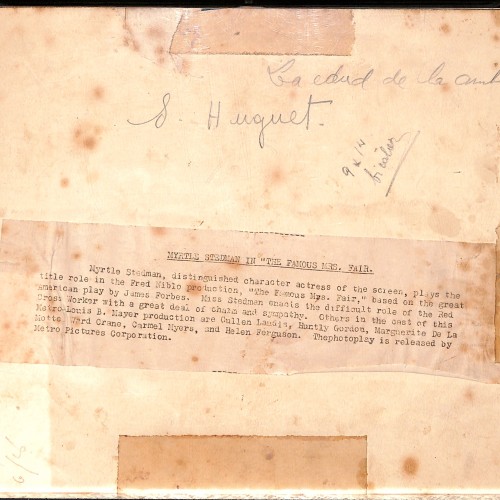 La edad de la
S. Huguet.
9 x 14
MYRTLE STEDMAN IN "THE FAMOUS MRS. FAIR.
Myrtle Stedman, distinguished character actress of the screen, plays the
title role in the Fred Niblo production, "The Famous Mrs. Fair," based on the great
American play by James Forbes. Miss Stedman enacts the difficult role of the Red
Cross Worker with a great deal of charm and sympathy. Others in the cast of this
Metro-Louis B. Mayer production are Cullen Landis, Huntly Gordon, Marguerite De La
Motte, Ward Crane, Carmel Myers, and Helen Ferguson. Thephotoplay is released by
Metro Pictures Corporation.